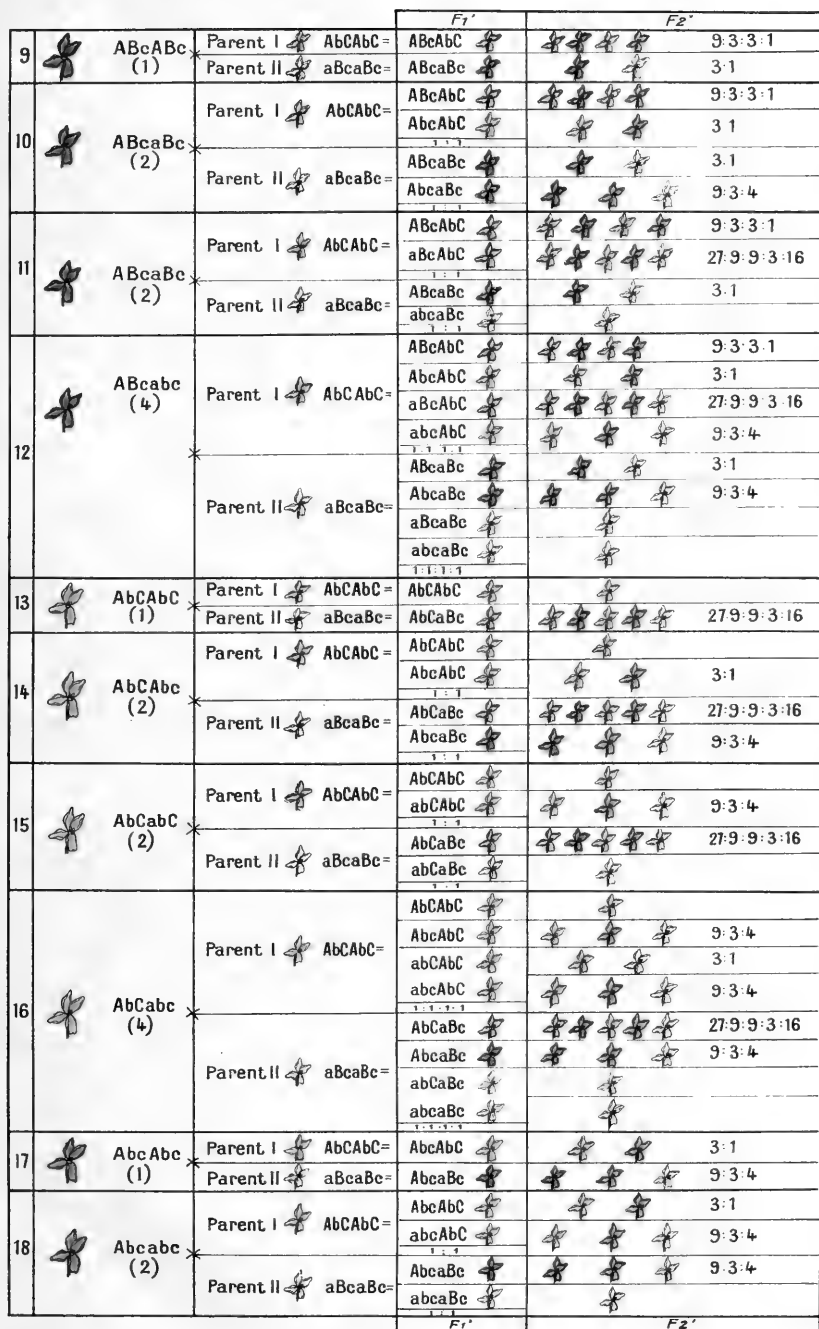 F1' F2'
9 ABcABc (1) × Parent I AbCAbC= ABcAbC 9:3:3:1
Parent II aBcaBc= ABcaBc 3·1
10 ABcaBc (2) × Parent I AbCAbC= ABcAbC 9:3:3:1
AbcAbC 3·1
1:1
Parent II aBcaBc= ABcaBc 3.1
AbcaBc 9:3:4
1:1
11 ABcaBc (2) × Parent I AbCAbC= ABcAbC 9:3:3:1
aBcAbC 27:9:9:3:16
1:1
Parent II aBcaBc= ABcaBc 3·1
abcaBc
1:1
12 ABcabc (4) × Parent I AbCAbC= ABcAbC 9:3·3·1
AbcAbC 3:1
aBcAbC 27:9·9·3·16
abcAbC 9:3:4
1:1:1:1
Parent II aBcaBc= ABcaBc 3:1
AbcaBc 9:3:4
aBcaBc
abcaBc
1:1:1:1
13 AbCAbC (1) × Parent I AbCAbC= AbCAbC
Parent II aBcaBc= AbCaBc 27:9:9:3:16
14 AbCAbc (2) × Parent I AbCAbC= AbCAbC
AbcAbC 3:1
1:1
Parent II aBcaBc= AbCaBc 27:9:9:3:16
AbcaBc 9:3:4
1:1
15 AbCabC (2) × Parent I AbCAbC= AbCAbC
abCAbC 9:3:4
1:1
Parent II aBcaBc= AbCaBc 27:9:9:3:16
abCaBc
1:1
16 AbCabc (4) × Parent I AbCAbC= AbCAbC
AbcAbC 9:3:4
abCAbC 3:1
abcAbC 9:3:4
1:1:1:1
Parent II aBcaBc= AbCaBc 27:9:9:3:16
AbcaBc 9:3:4
abCaBc
abcaBc
1:1:1:1
17 AbcAbc (1) × Parent I AbCAbC= AbcAbC 3:1
Parent II aBcaBc= AbcaBc 9:3:4
18 Abcabc (2) × Parent I AbCAbC= AbcAbC 3:1
abcAbC 9:3:4
1:1
Parent II aBcaBc= AbcaBc 9:3:4
abcaBc
1:1
F1' F2'